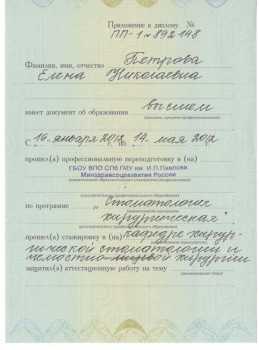 Приложение к диплому №
ПП-1 № 892148
Фамилия, имя, отчество Петрова
Елена Николаевна
имеет документ об образовании высшем
С 16 января 2012 по 14 мая 2012
прошел(а) профессиональную переподготовку в (на)
ГБОУ ВПО СПб ГМУ им. И.П.Павлова
Минздравсоцразвития России
по программе Стоматология
хирургическая
прошел(а) стажировку в (на) кафедре хирур-
гической стоматологии и
челюстно-лицевой хирургии
защитил(а) аттестационную работу на тему